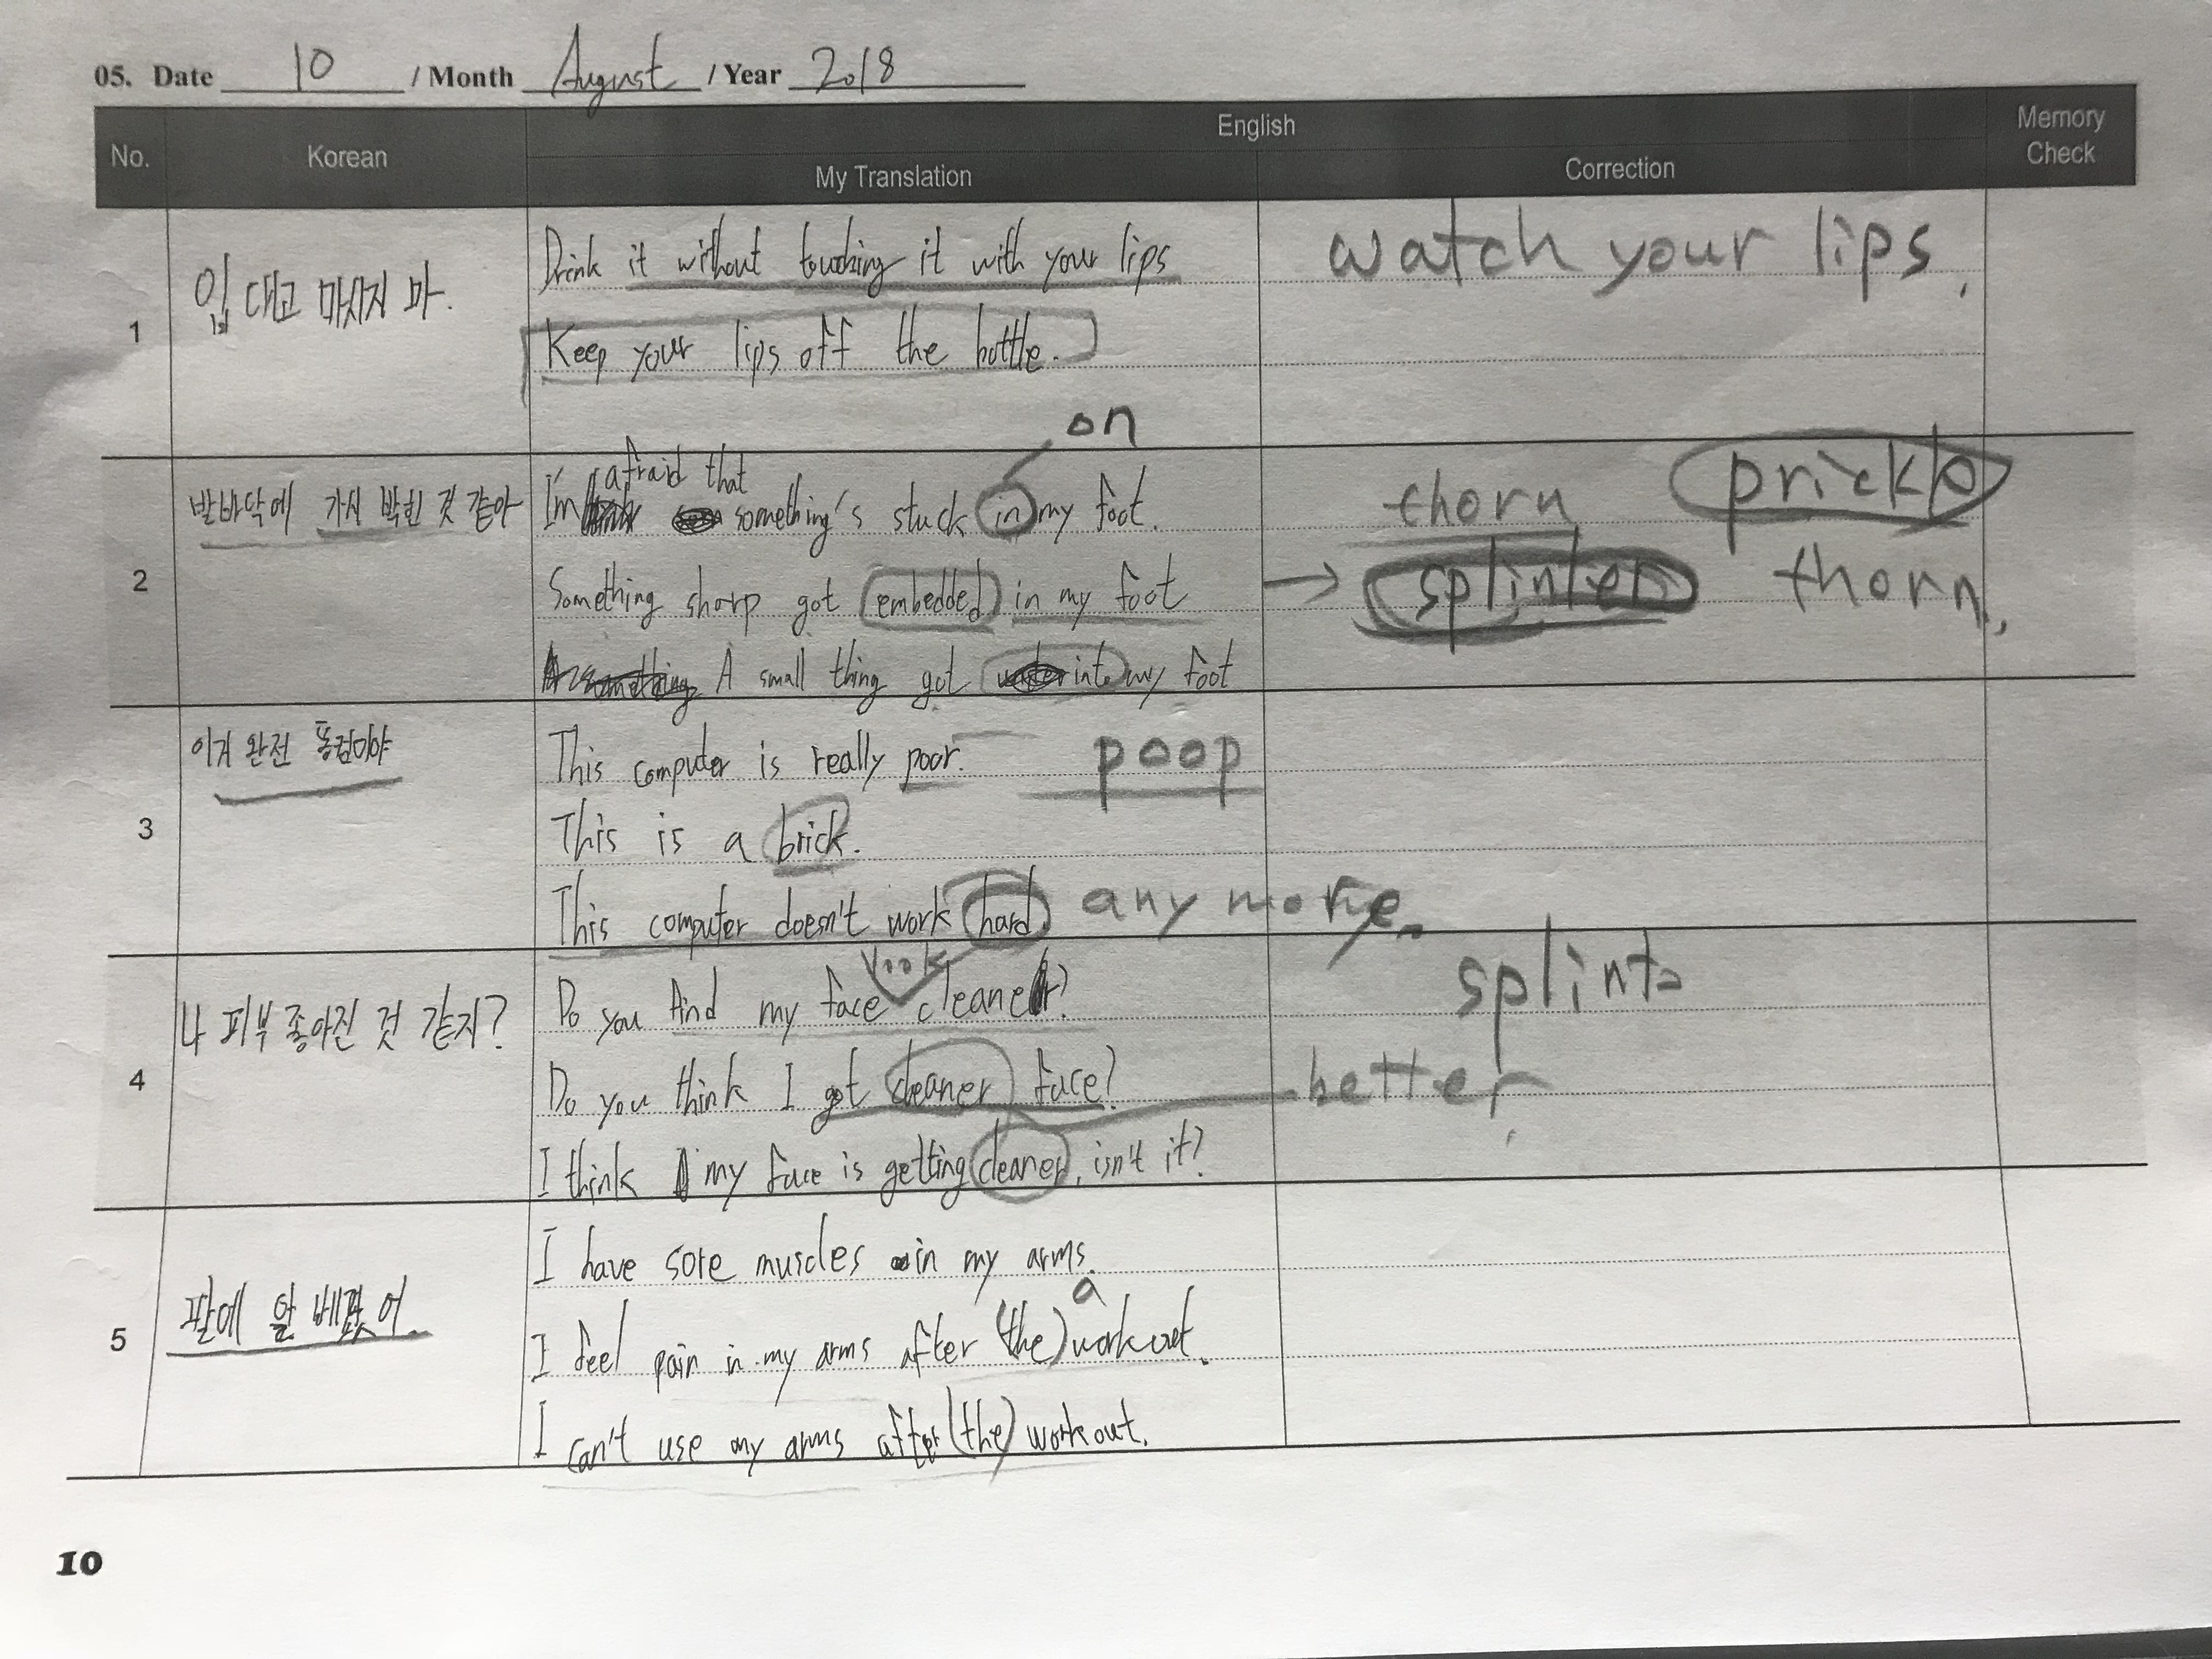 05. Date 10 / Month August / Year 2018
No. Korean English Memory Check
My Translation Correction
1 입 대고 마시지 마. Drink it without touching it with your lips watch your lips.
Keep your lips off the bottle.
on
afraid that
2 발바닥에 가시 박힌 것 같아 I'm something's stuck in my foot. thorn prickle
Something sharp got embedded in my foot → splinter thorn.
A something A small thing got into my foot
3 이거 완전 똥컴이야 This computer is really poor. poop
This is a brick.
This computer doesn't work hard. any more.
look
4 나 피부 좋아진 것 같지? Do you find my face cleaner? splint
Do you think I got cleaner face? better
I think my face is getting cleaner, isn't it?
5 팔에 알 베겼어. I have sore muscles in my arms.
a
I feel pain in my arms after (the) workout.
I can't use my arms after (the) workout.
10